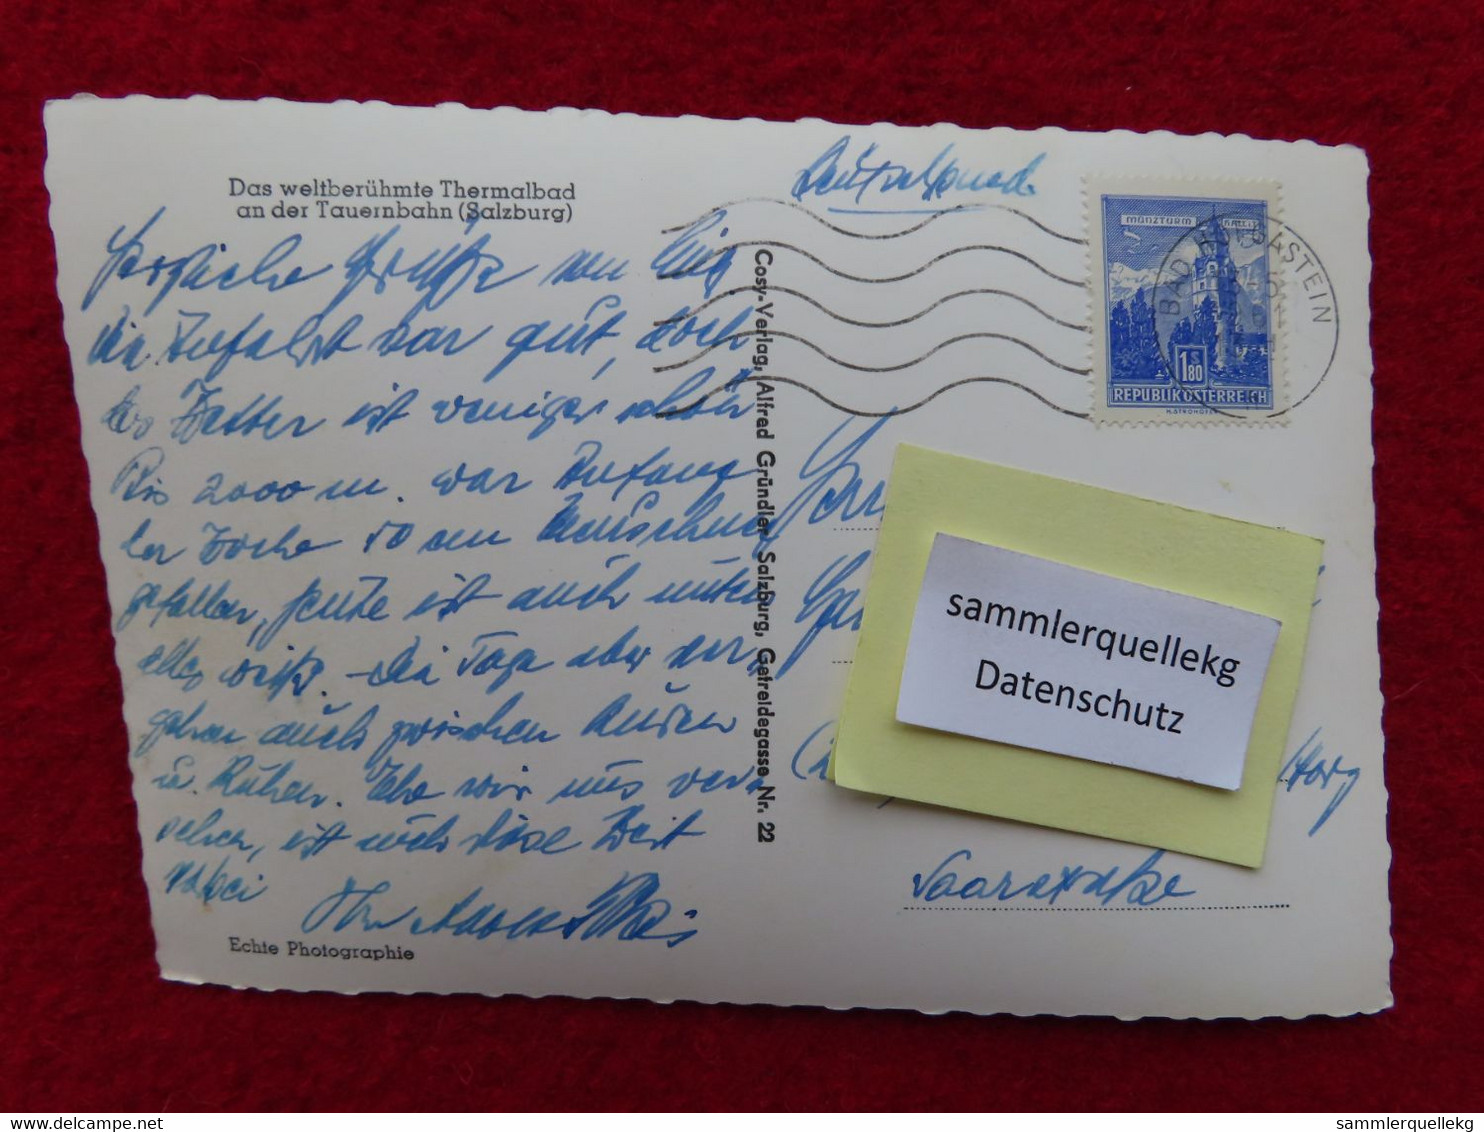 Das weltberühmte Thermalbad
an der Tauernbahn (Salzburg)
Herzliche Grüße von hier.
die Anfahrt war gut, doch
das Wetter ist weniger schön
Bis 2000 m. war Anfang
der Woche 50 cm Neuschnee
gefallen, heute ist auch unten
alles weiß. - die Tage aber ver
gehen auch zwischen Kuren
u. Ruhen. Ehe wir uns ver
sehen, ist auch diese Zeit
vorbei
Echte Photographie
Cosy-Verlag, Alfred Gründler Salzburg, Getreidegasse Nr. 22
Deutschland
MÜNZTURM HALL I.T.
1 S 80
REPUBLIK ÖSTERREICH
H.STROHOFER
BAD HOFGASTEIN
sammlerquellekg
Datenschutz
Saarstraße
www.delcampe.net
sammlerquellekg